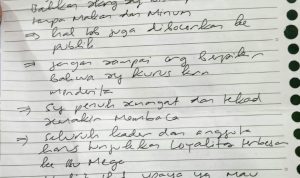 Bahkan
tanpa Makan dan Minum
⇒ hal tsb juga dibocorkan ke
publik
⇒ Jangan sampai org berpikir
Bahwa sy kurus krn
menderita
⇒ Sy penuh semangat dan tekad
semakin Membaca
⇒ Seluruh kader dan anggota
harus tunjukkan Loyalitas terbesar
ke Ibu Mega
upaya yg mau